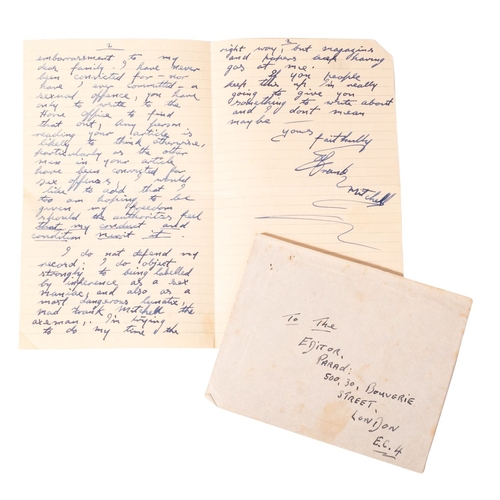 2
embarrassment to my
dear family. I have never
been convicted for - nor
have I ever committed a
sexual offence, you have
only to write to the
Home office to find
that out, any person
reading your article is
likely to think otherwise,
particularly as the other
men in your article
have been convicted for
sex offences, I would
like to add that I
too am hoping to be
given my freedom
should the authorities feel
that my conduct and
condition merit it.
I do not defend my
record; I do object
strongly to being labelled
by inference as a sex
maniac, and also as a
most dangerous lunatic
mad Frank Mitchell the
axeman, I'm trying
to do my time the
right way, but magazines
and papers keep having
gos at me.
If you people
keep this up, I'm really
going to give you
something to write about
and I don't mean
maybe
yours faithfully
Frank
Mitchell
To The
EDITOR,
PARAD:
500, 30, BOUVERIE
STREET,
LONDON
E.C. 4